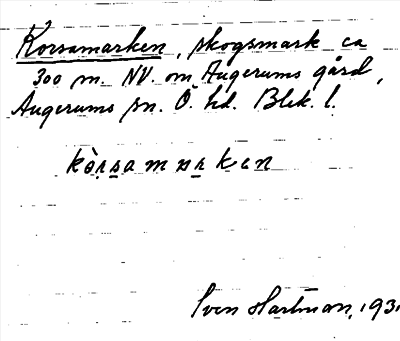 Korsamarken, skogsmark ca
300 m. NV. om Augerums gård,
Augerums sn. Ö. hd. Blek. l.
kòrsamarkan
Sven Hartman, 193